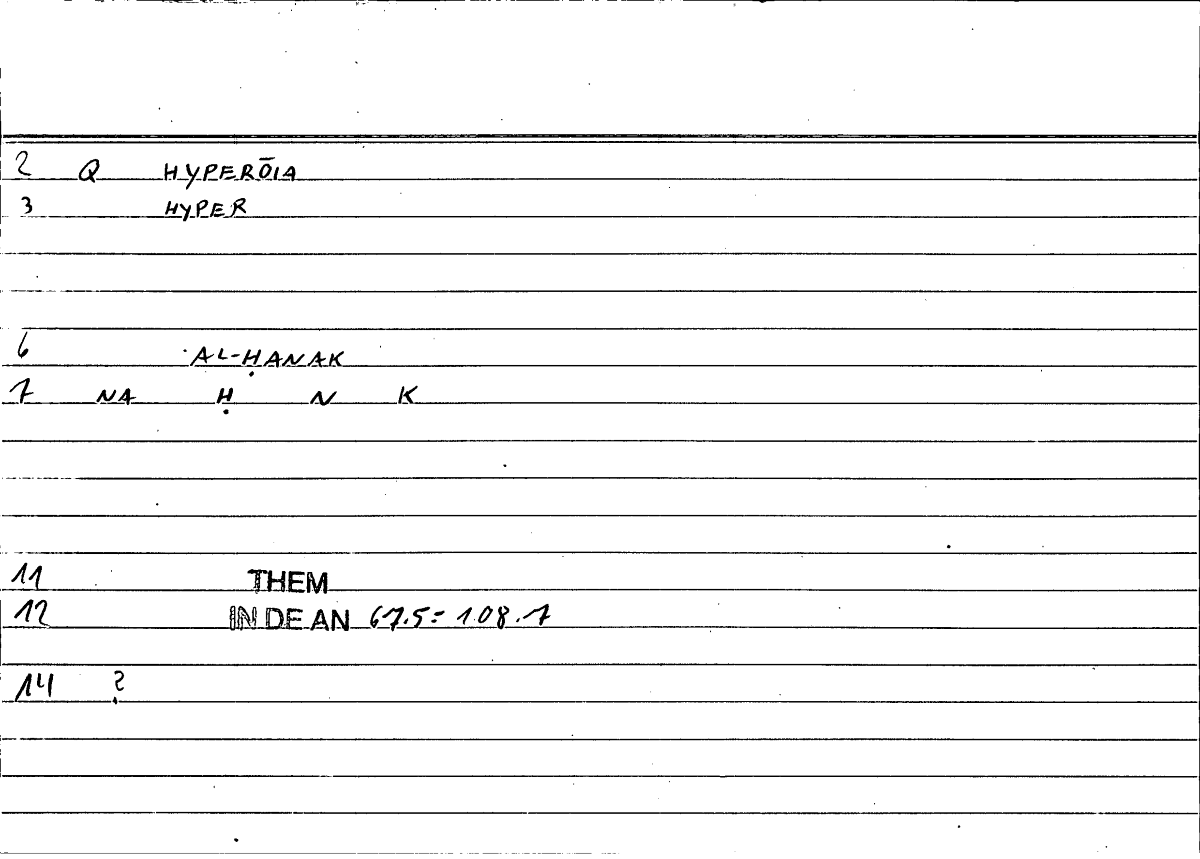 2 Q HYPERŌIA
3 HYPER
6 AL-ḤANAK
7 NA Ḥ N K
11 THEM
12 IN DE AN 67.5 = 108.7
14 ?